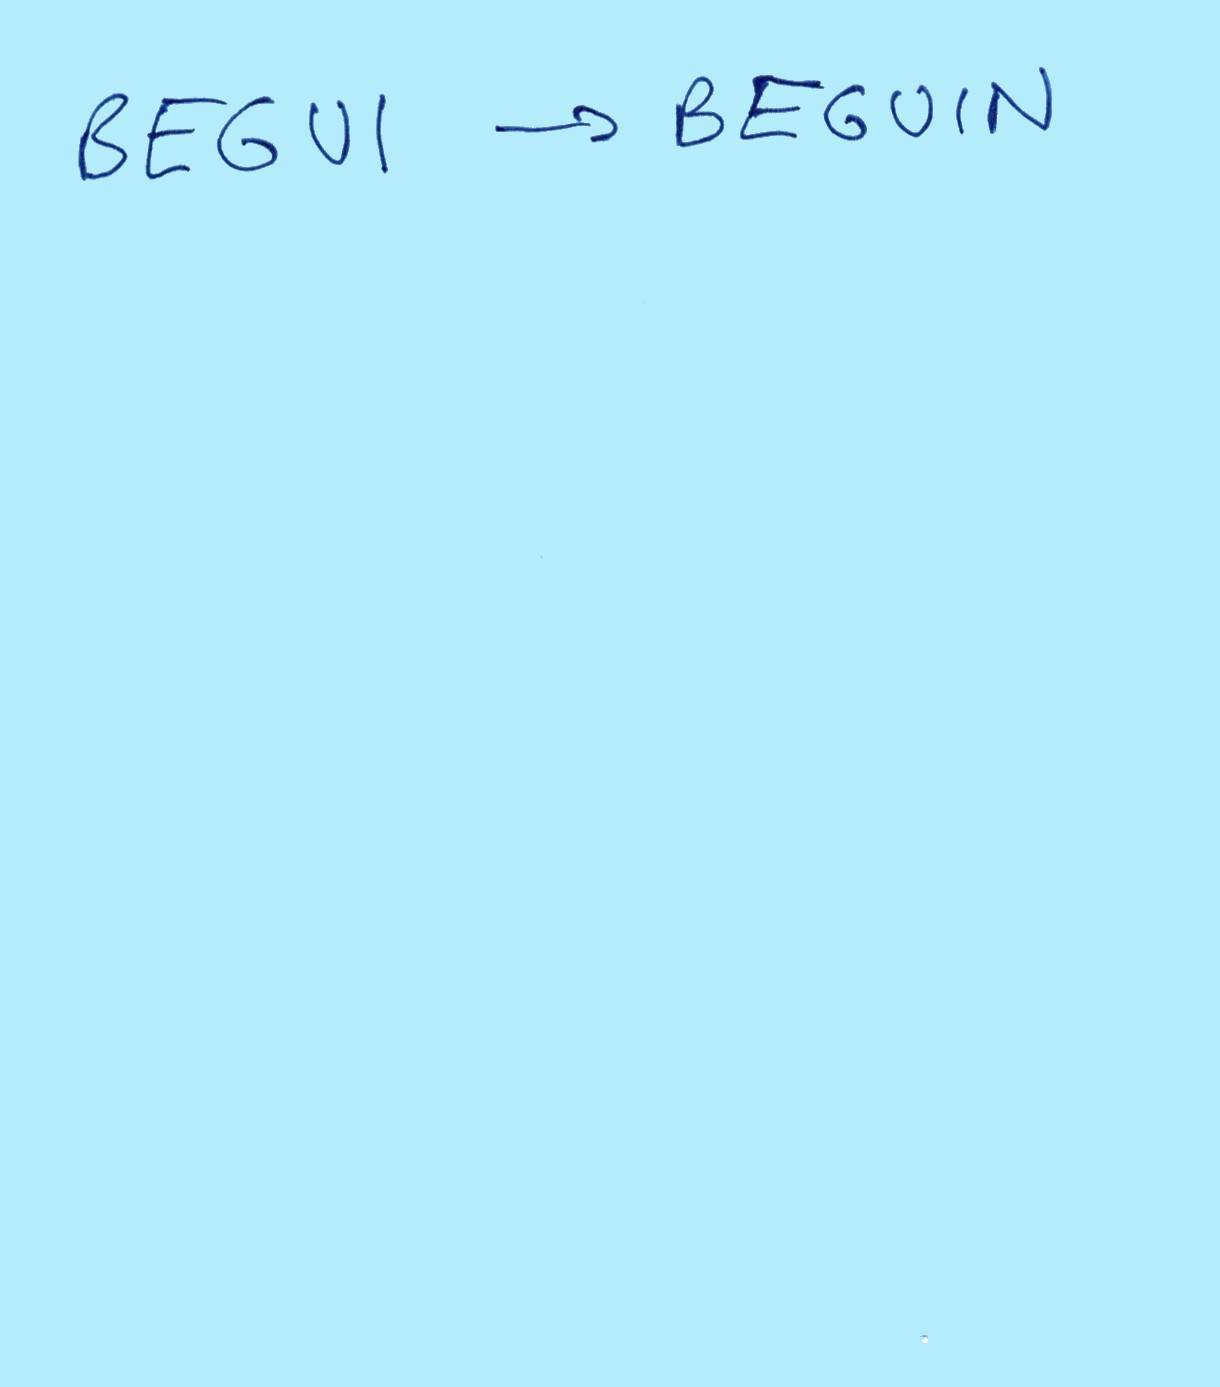 BEGUI → BEGUIN